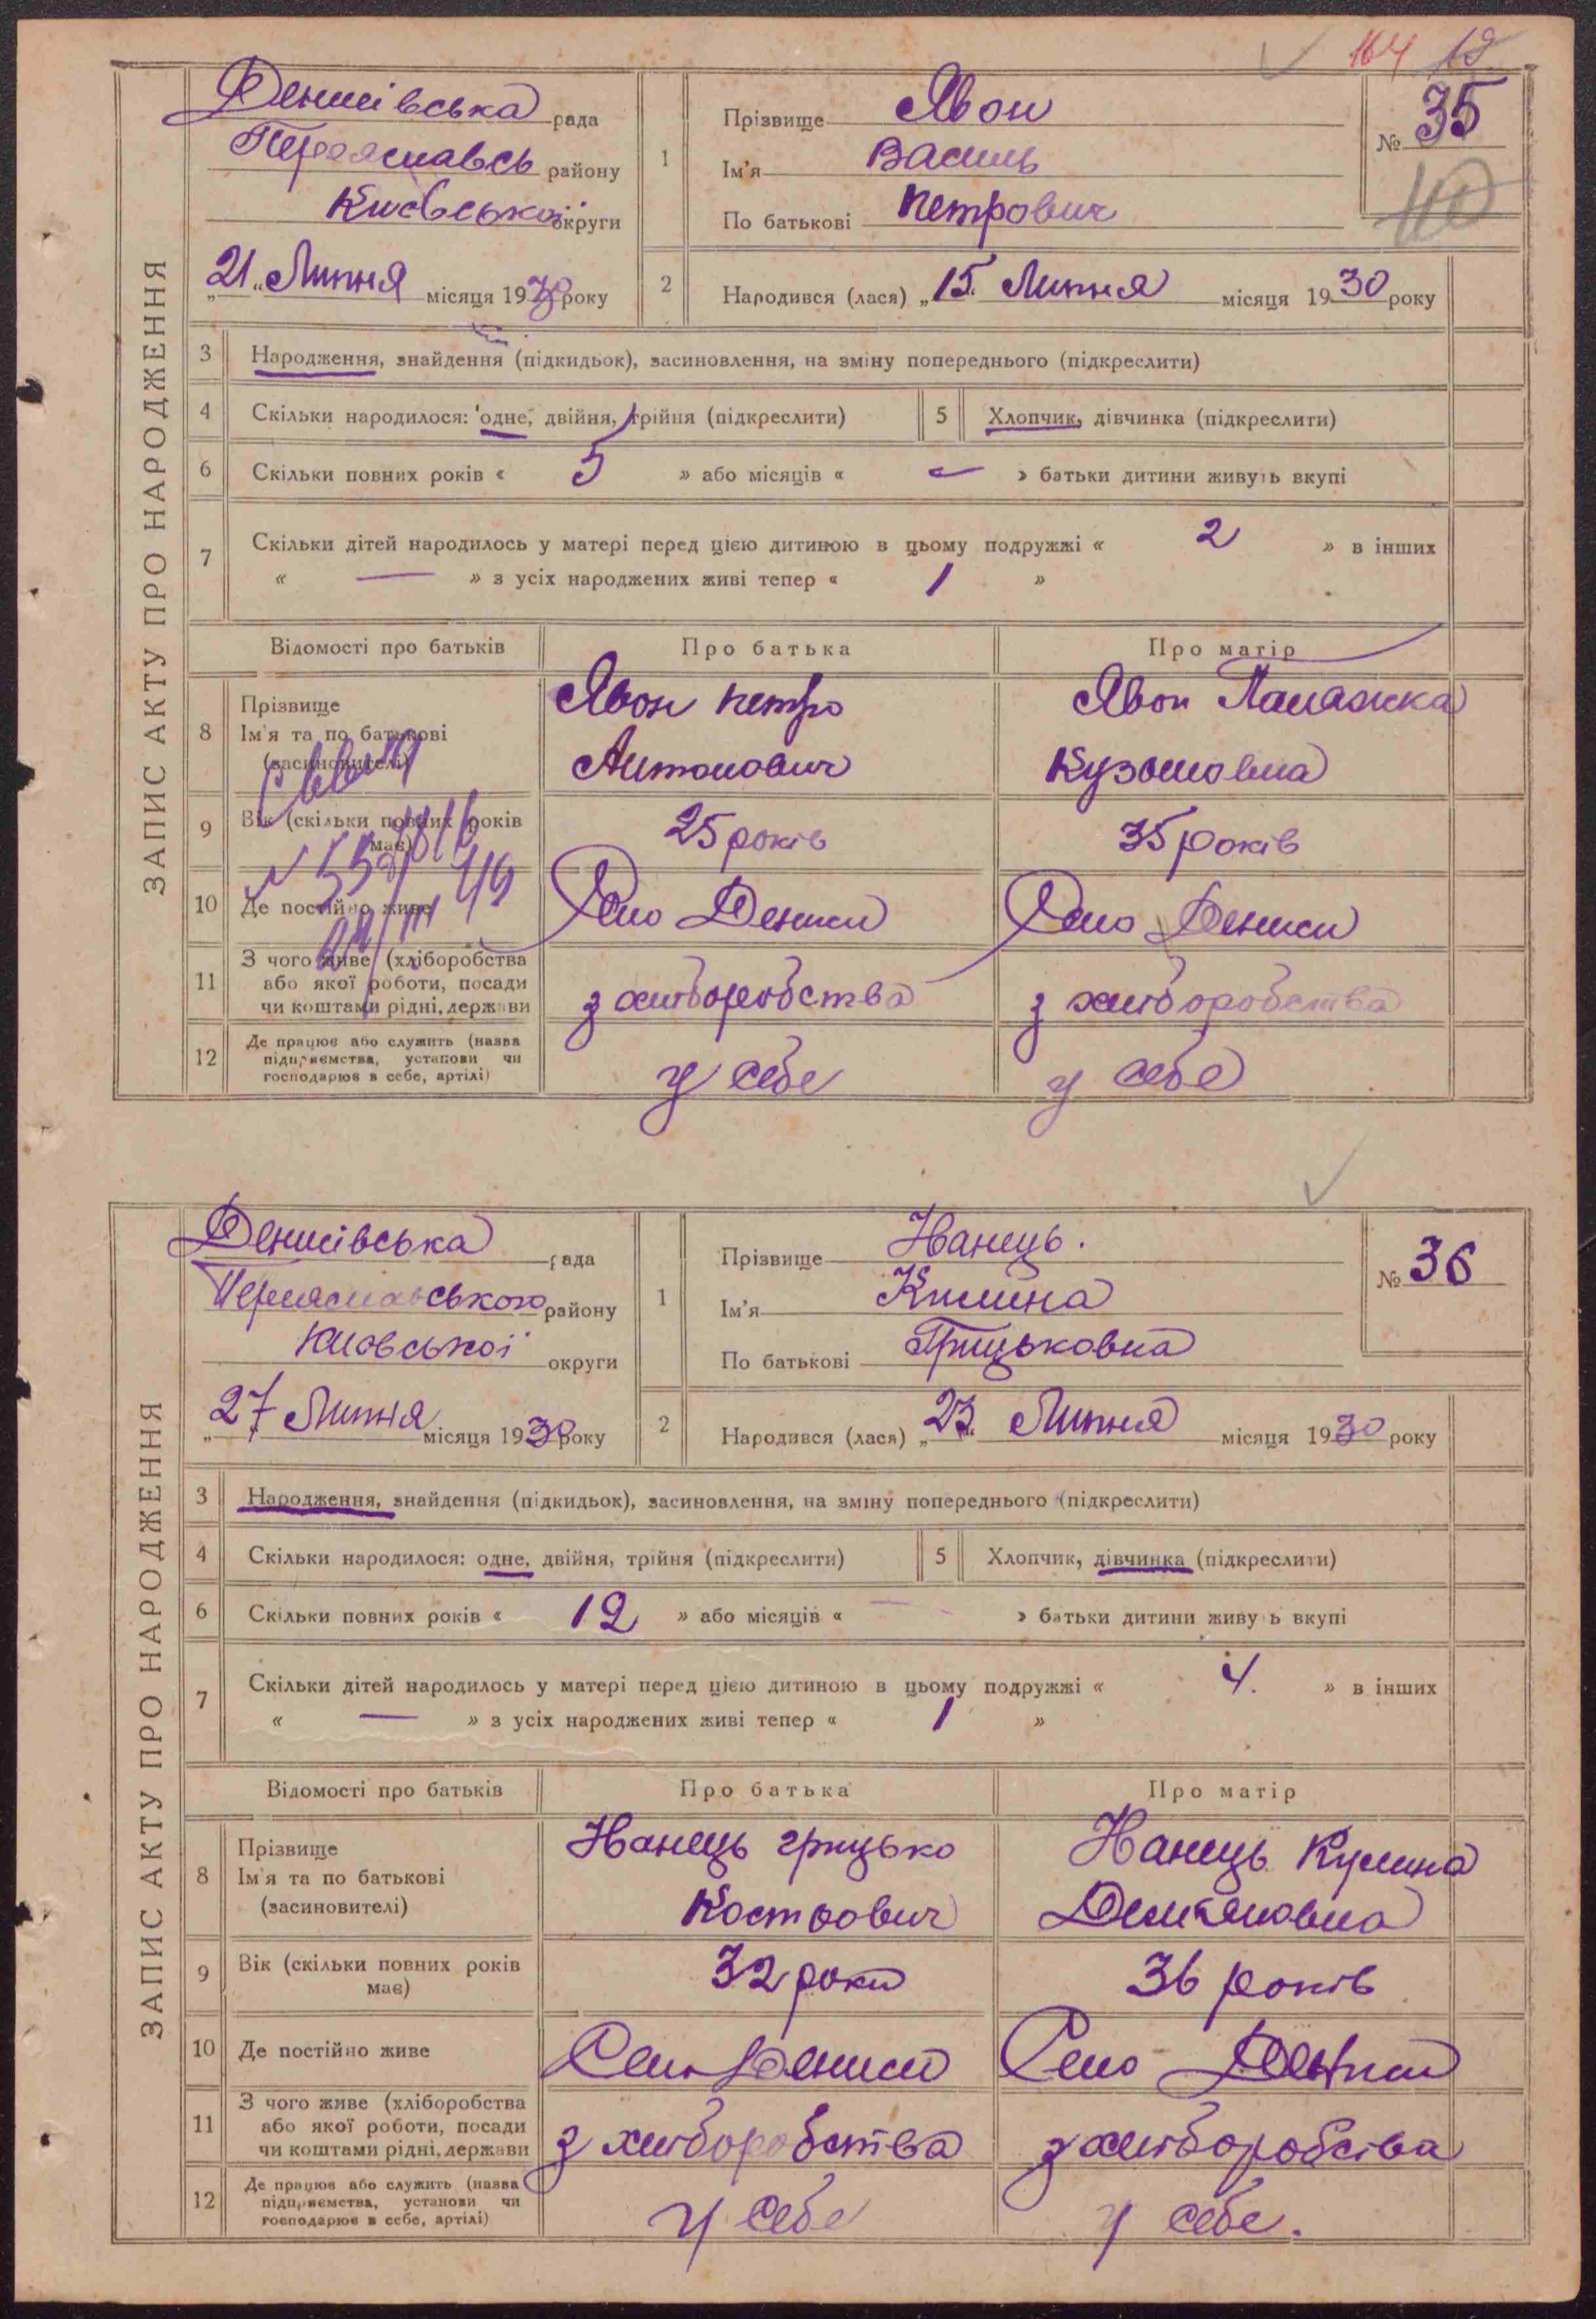 164 19
ЗАПИС АКТУ ПРО НАРОДЖЕННЯ
Денисівська рада
Переяславсь району
Київської округи
„21“ Липня місяця 1930 року
1
Прізвище Явон
Ім'я Василь
По батькові Петрович
№ 35
40
2 Народився (лася) „15“ Липня місяця 1930 року
3 Народження, знайдення (підкидьок), засиновлення, на зміну попереднього (підкреслити)
4 Скільки народилося: одне, двійня, трійня (підкреслити) 5 Хлопчик, дівчинка (підкреслити)
6 Скільки повних років « 5 » або місяців « — » батьки дитини живуть вкупі
7 Скільки дітей народилось у матері перед цією дитиною в цьому подружжі « 2 » в інших
« — » з усіх народжених живі тепер « 1 »
Відомості про батьків Про батька Про матір
8 Прізвище
Ім'я та по батькові
(засиновителі)
Явон Петро
Антонович
Явон Палажка
Кузьмовна
9 Вік (скільки повних років
має)
25 років 35 років
10 Де постійно живе Село Дениси Село Дениси
11 З чого живе (хліборобства
або якої роботи, посади
чи коштами рідні, держави
з хліборобства з хліборобства
12 Де працює або служить (назва
підприємства, установи чи
господарює в себе, артілі)
у себе у себе
ЗАПИС АКТУ ПРО НАРОДЖЕННЯ
Денисівська рада
Переяславського району
Київської округи
„27 Липня місяця 1930 року
1
Прізвище Іванець.
Ім'я
По батькові Грицьковна
№ 36
2 Народився (лася) „23“ Липня місяця 1930 року
3 Народження, знайдення (підкидьок), засиновлення, на зміну попереднього (підкреслити)
4 Скільки народилося: одне, двійня, трійня (підкреслити) 5 Хлопчик, дівчинка (підкреслити)
6 Скільки повних років « 12 » або місяців « — » батьки дитини живуть вкупі
7 Скільки дітей народилось у матері перед цією дитиною в цьому подружжі « 4. » в інших
« — » з усіх народжених живі тепер « 1 »
Відомості про батьків Про батька Про матір
8 Прізвище
Ім'я та по батькові
(засиновителі)
Іванець грицько
Іванець Кулина
Демяновна
9 Вік (скільки повних років
має)
32 роки 36 років
10 Де постійно живе Село Дениси Село Дениси
11 З чого живе (хліборобства
або якої роботи, посади
чи коштами рідні, держави
з хліборобства з хліборобства
12 Де працює або служить (назва
підприємства, установи чи
господарює в себе, артілі)
у себе у себе.